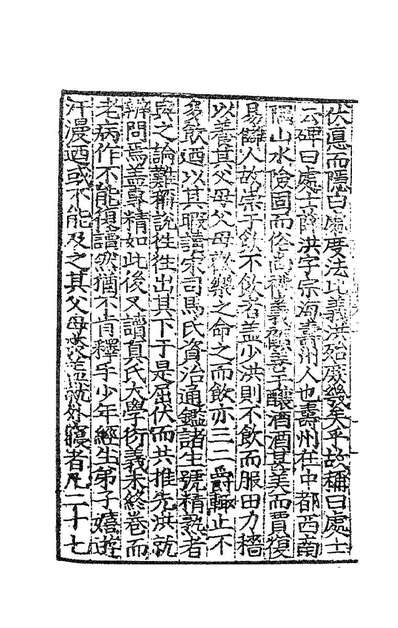 伏悳而隱白處度法比義洪始庶幾矣乎故稱曰處士
云碑曰處士薛洪字宗海壽州人也壽州在中都西南
隅山水險固而俗尚禮義然善于釀酒酒甚美而賈復
易醉人故宗于飲不飲者盖少洪則不飲而服田力穡
以養其父母父母歡樂之命之而飲亦三二爵輙止不
多飲廼以其暇讀宋司馬氏資治通鑑諸生號精熟者
與之論難稱説徃徃出其下于是屈伏而共推先洪就
辨問焉盖專精如此後又讀真氏大學衍義未終卷而
老病作不能復讀然猶不肯釋手少年經生弟子嬉遊
汗漫廼或不能及之其父母就外寢者凡二十七